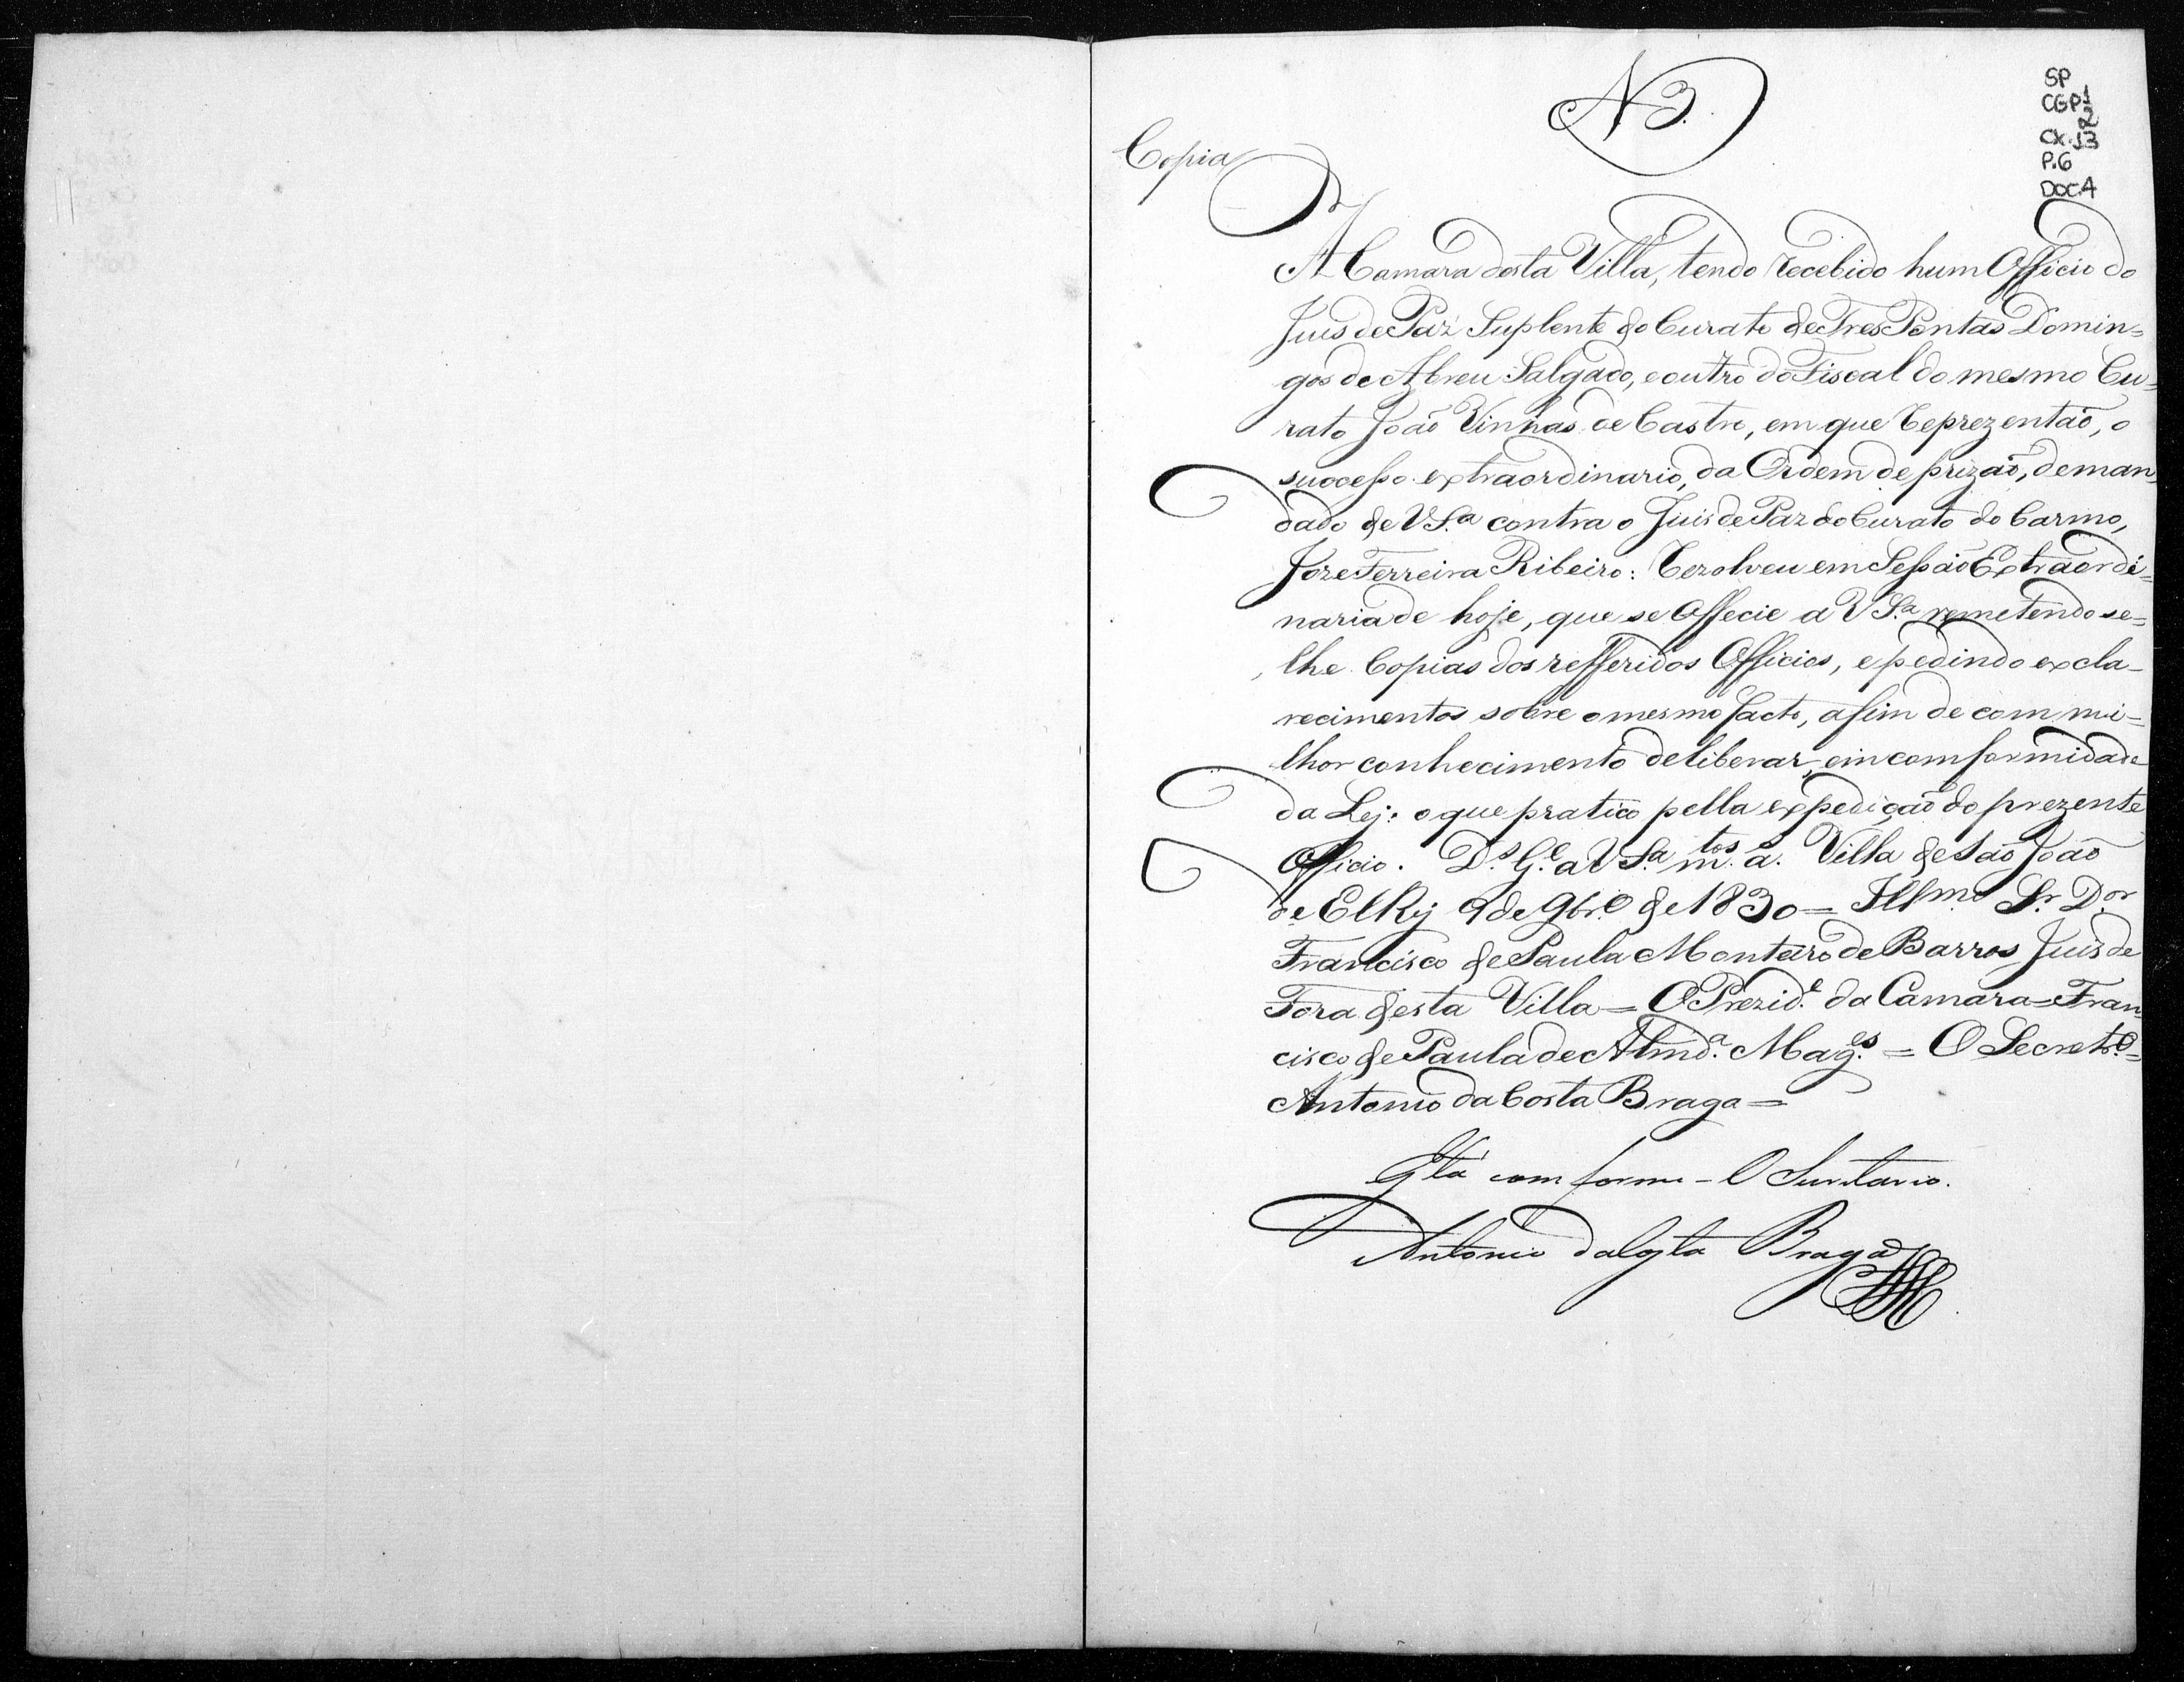 N 3.
SP
CGP 1
2
CX. 13
P.6
DOC.4
Copia
A Camara desta Villa, tendo recebido hum Officio do
Juis de Paz Suplente do Curato de Tres Pontas Domin=
gos de Abreu Salgado, e outro do Fiscal do mesmo Cu=
rato João Vinhas de Castro, em que Reprezentaõ, o
sucesso extraordinario, da Ordem de prizaõ, de man=
dado de VS.ª contra o Juis de Paz do Curato do Carmo,
Joze Ferreira Ribeiro: Rezolveu em Sessaõ Extraordi=
naria de hoje, que se Offecie a VS.ª remetendo se=
lhe Copias dos refferidos Officios, e pedindo excla=
recimentos sobre o mesmo facto, afim de com mi=
lhor conhecimento deliberar, em comformidade
da Lej: o que pratico pella expediçaõ do prezente
Officio. D.s G.e a VS.ª m.tos a.s Villa de Saõ Joaõ
de ElRej 9 de 9br.o de 1830 = Ill.mo Sr. D.or
Francisco de Paula Monteiro de Barros Juis de
Fora desta Villa = O Prezid.e da Camara = Fran=
cisco de Paula de Almd.ª Mag.es = O Secret.o =
Antonio da Costa Braga =
Está comforme - O Secretario.
Antonio da Costa Braga